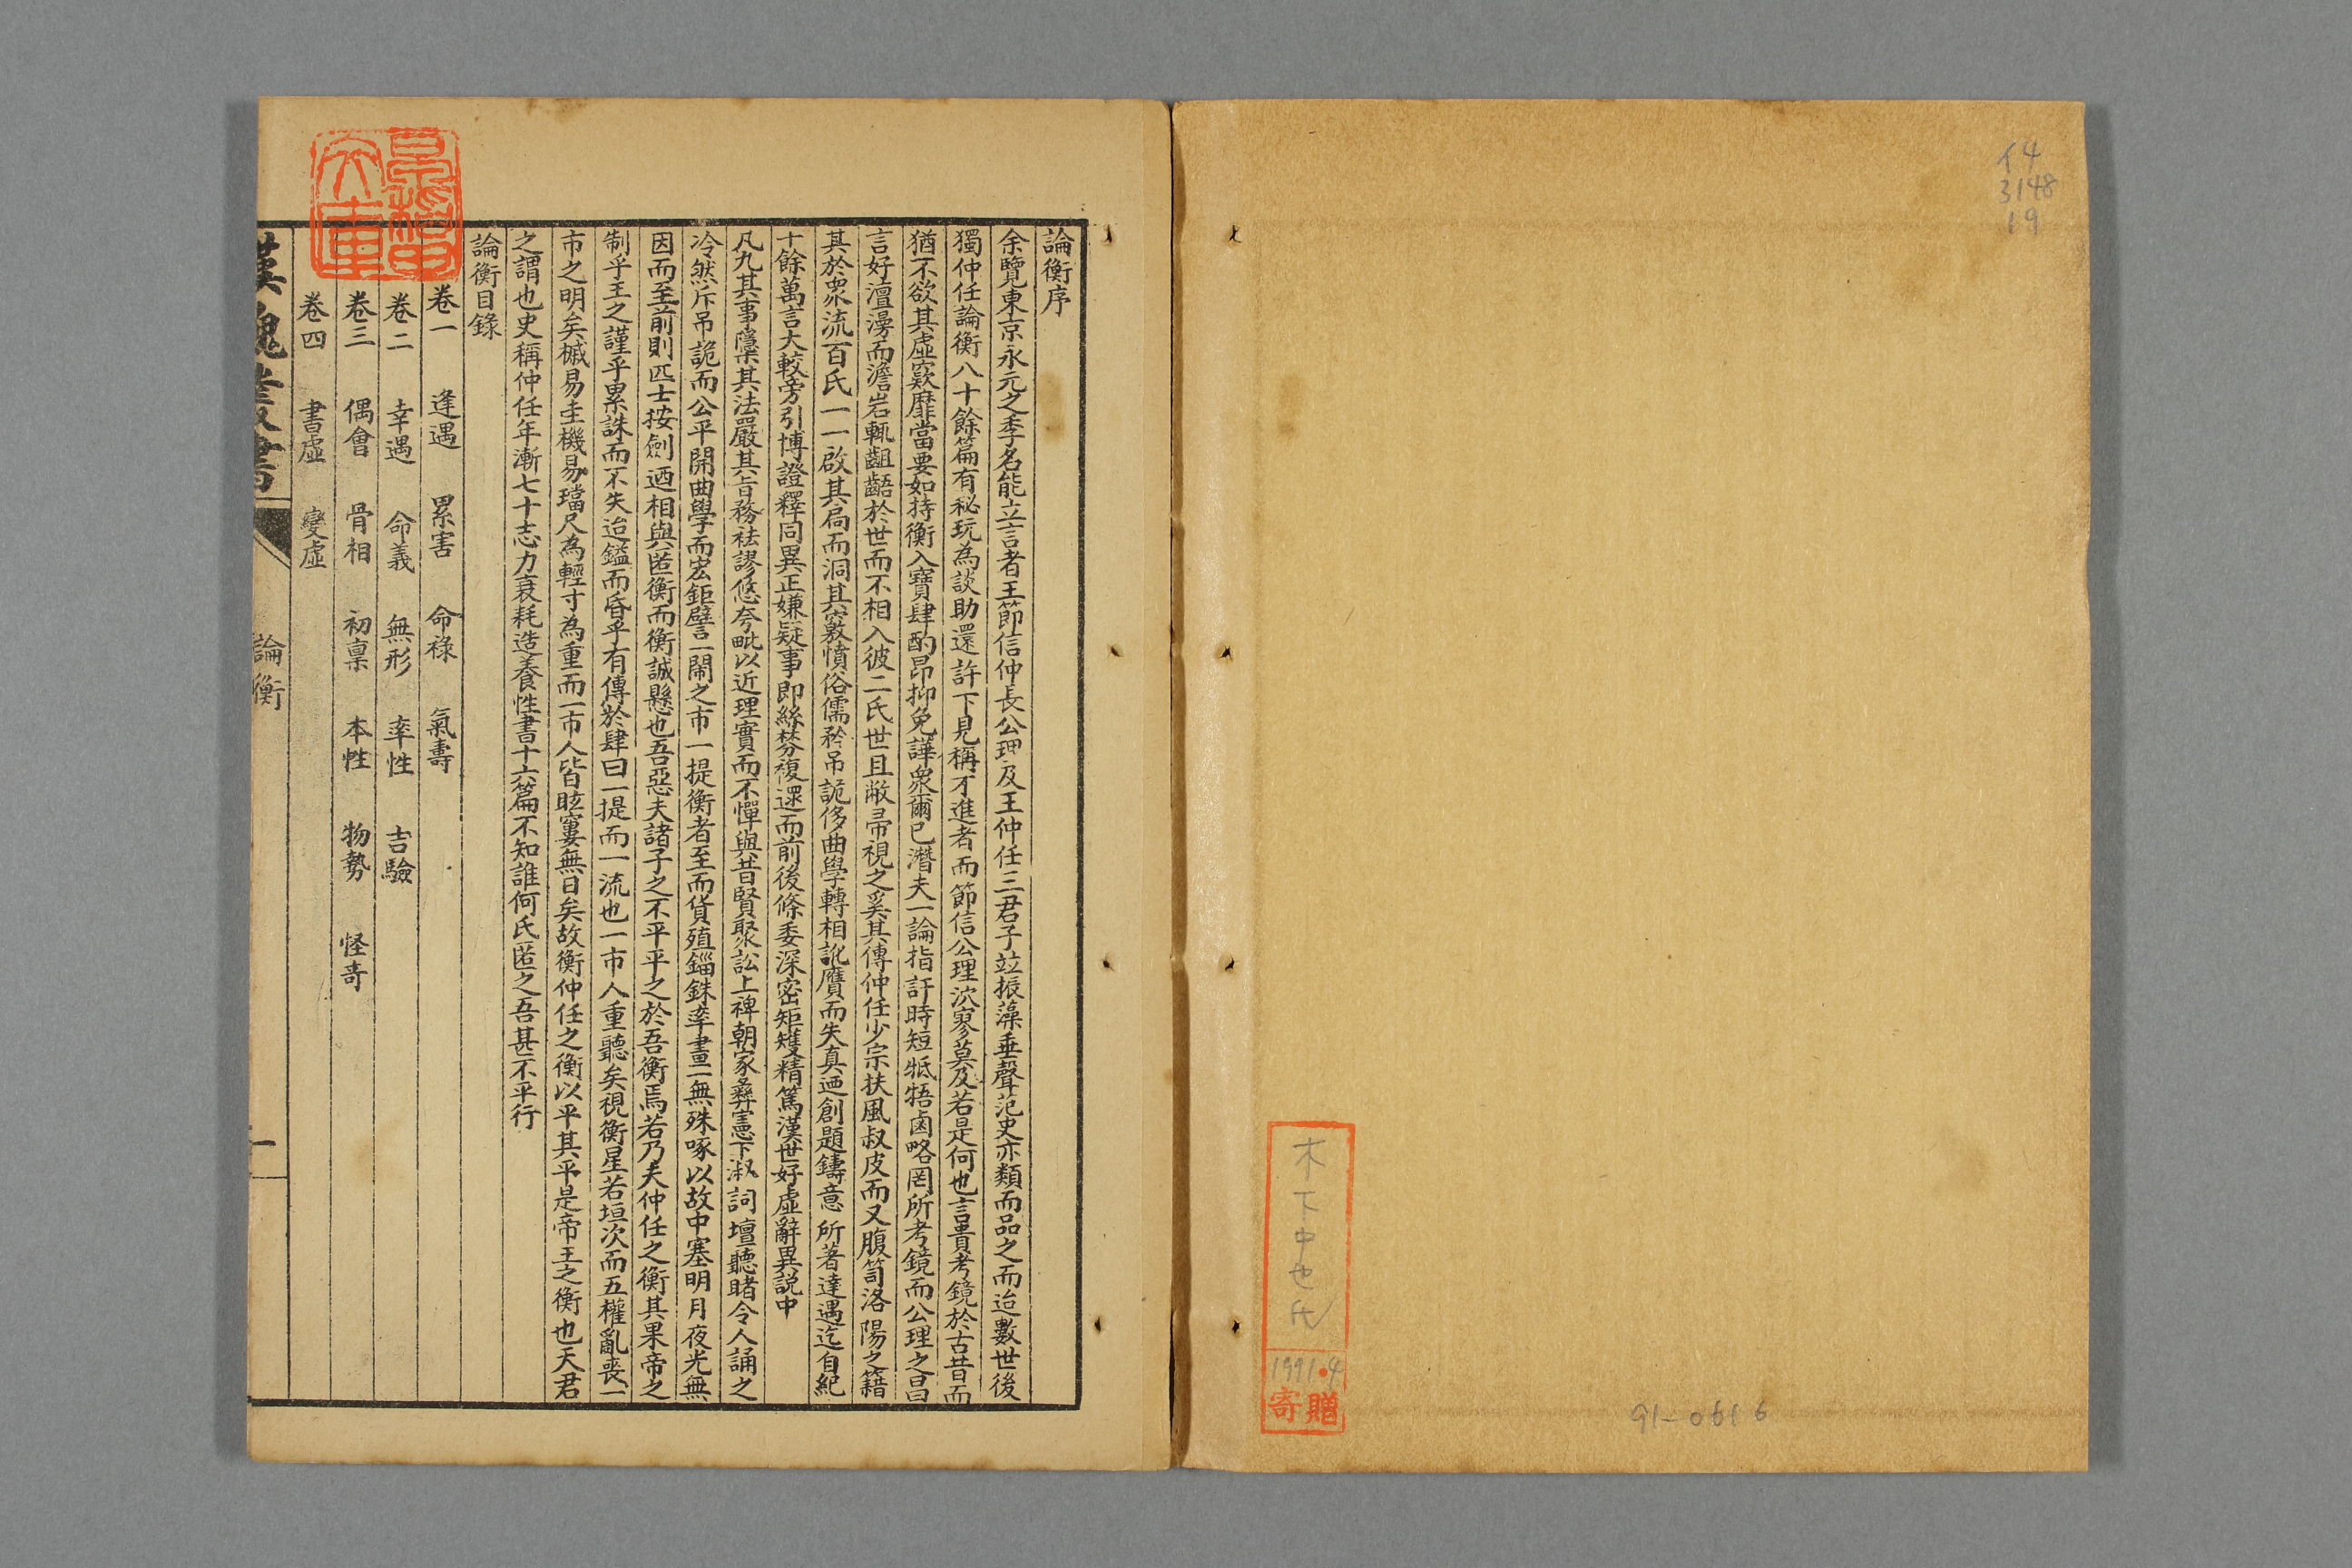 イ4
3148
19
木下中也氏
1991.4
寄贈
91-0616
論衡序
余覽東京永元之季名能立言者王節信仲長公理及王仲任三君子竝振藻垂聲范史亦類而品之而迨數世後
獨仲任論衡八十餘篇有秘玩為談助還許下見稱才進者而節信公理泬寥莫及若是何也言貴考鏡於古昔而
猶不欲其虛窾靡當要如持衡入寶肆酌昂抑免譁眾爾已潛夫一論指訐時短牴牾鹵略罔所考鏡而公理之昌
言好澶漫而澹岩輒齟齬於世而不相入彼二氏世且敝帚視之奚其傳仲任少宗扶風叔皮而又腹笥洛陽之籍
其於眾流百氏一一啟其扃而洞其竅憤俗儒矜吊詭侈曲學轉相訛贗而失真迺創題鑄意所著逢遇迄自紀
十餘萬言大較旁引博證釋同異正嫌疑事即絲棼複還而前後條委深密矩矱精篤漢世好虛辭異說中
凡九其事檃其法嚴其旨務袪謬悠夸毗以近理實而不憚與昔賢聚訟上裨朝家彝憲下淑詞壇聽睹令人誦之
冷然斥吊詭而公平開曲學而宏鉅譬一閙之市一提衡者至而貨殖錙銖率畫一無殊啄以故中塞明月夜光無
因而至前則匹士按劍迺相與匿衡而衡誠懸也吾惡夫諸子之不平平之於吾衡焉若乃夫仲任之衡其果帝之
制乎王之謹乎累誅而不失迨鎰而昏乎有傳於肆曰一提而一流也一市人重聽矣視衡星若垣次而五權亂喪一
市之明矣槭易圭機易璫尺為輕寸為重而一市人皆眩窶無日矣故衡仲任之衡以平其平是帝王之衡也天君
之謂也史稱仲任年漸七十志力衰耗造養性書十六篇不知誰何氏匿之吾甚不平行
論衡目錄
卷一 逢遇 累害 命祿 氣壽
卷二 幸遇 命義 無形 率性 吉驗
卷三 偶會 骨相 初稟 本性 物勢 怪奇
卷四 書虛 變虛
漢魏叢書 論衡 一